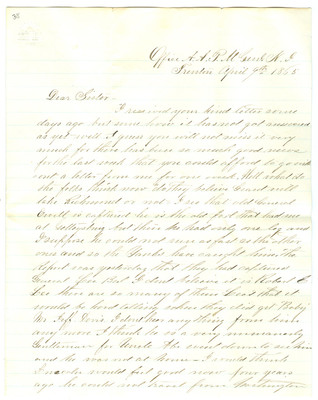 Office A.A.P.M. Genl. N.J.
Trenton April 9th 1865
Dear Sister
I received your kind letter some
days ago but some how it has not got answered
as yet well I guess you will not miss it very
much for there has been so much good news
for the last week that you could afford to go with
out a letter from me for one week. Well what do
the folks think now do they believe Grant will
take Richmond or not. I see that old General
Ewell is captured he is the old fact that had me
at Gettysburg but then he had only one leg and
I suppose he could not run as fast as the other
ones and so the Yanks have caught him. the
Report was yesterday that they had captured
General Lee But I dont believe it is Robert E
Lee there are so many of them Lees that it
would be hard telling when they did get
Mr Jeff Davis I dont hear any thing from him
any more I think he is a very
Gentleman for Uncle Abe went down to see him
and he was not at home I should think
Lincoln would feel good now four years
ago he could not travel from Washington